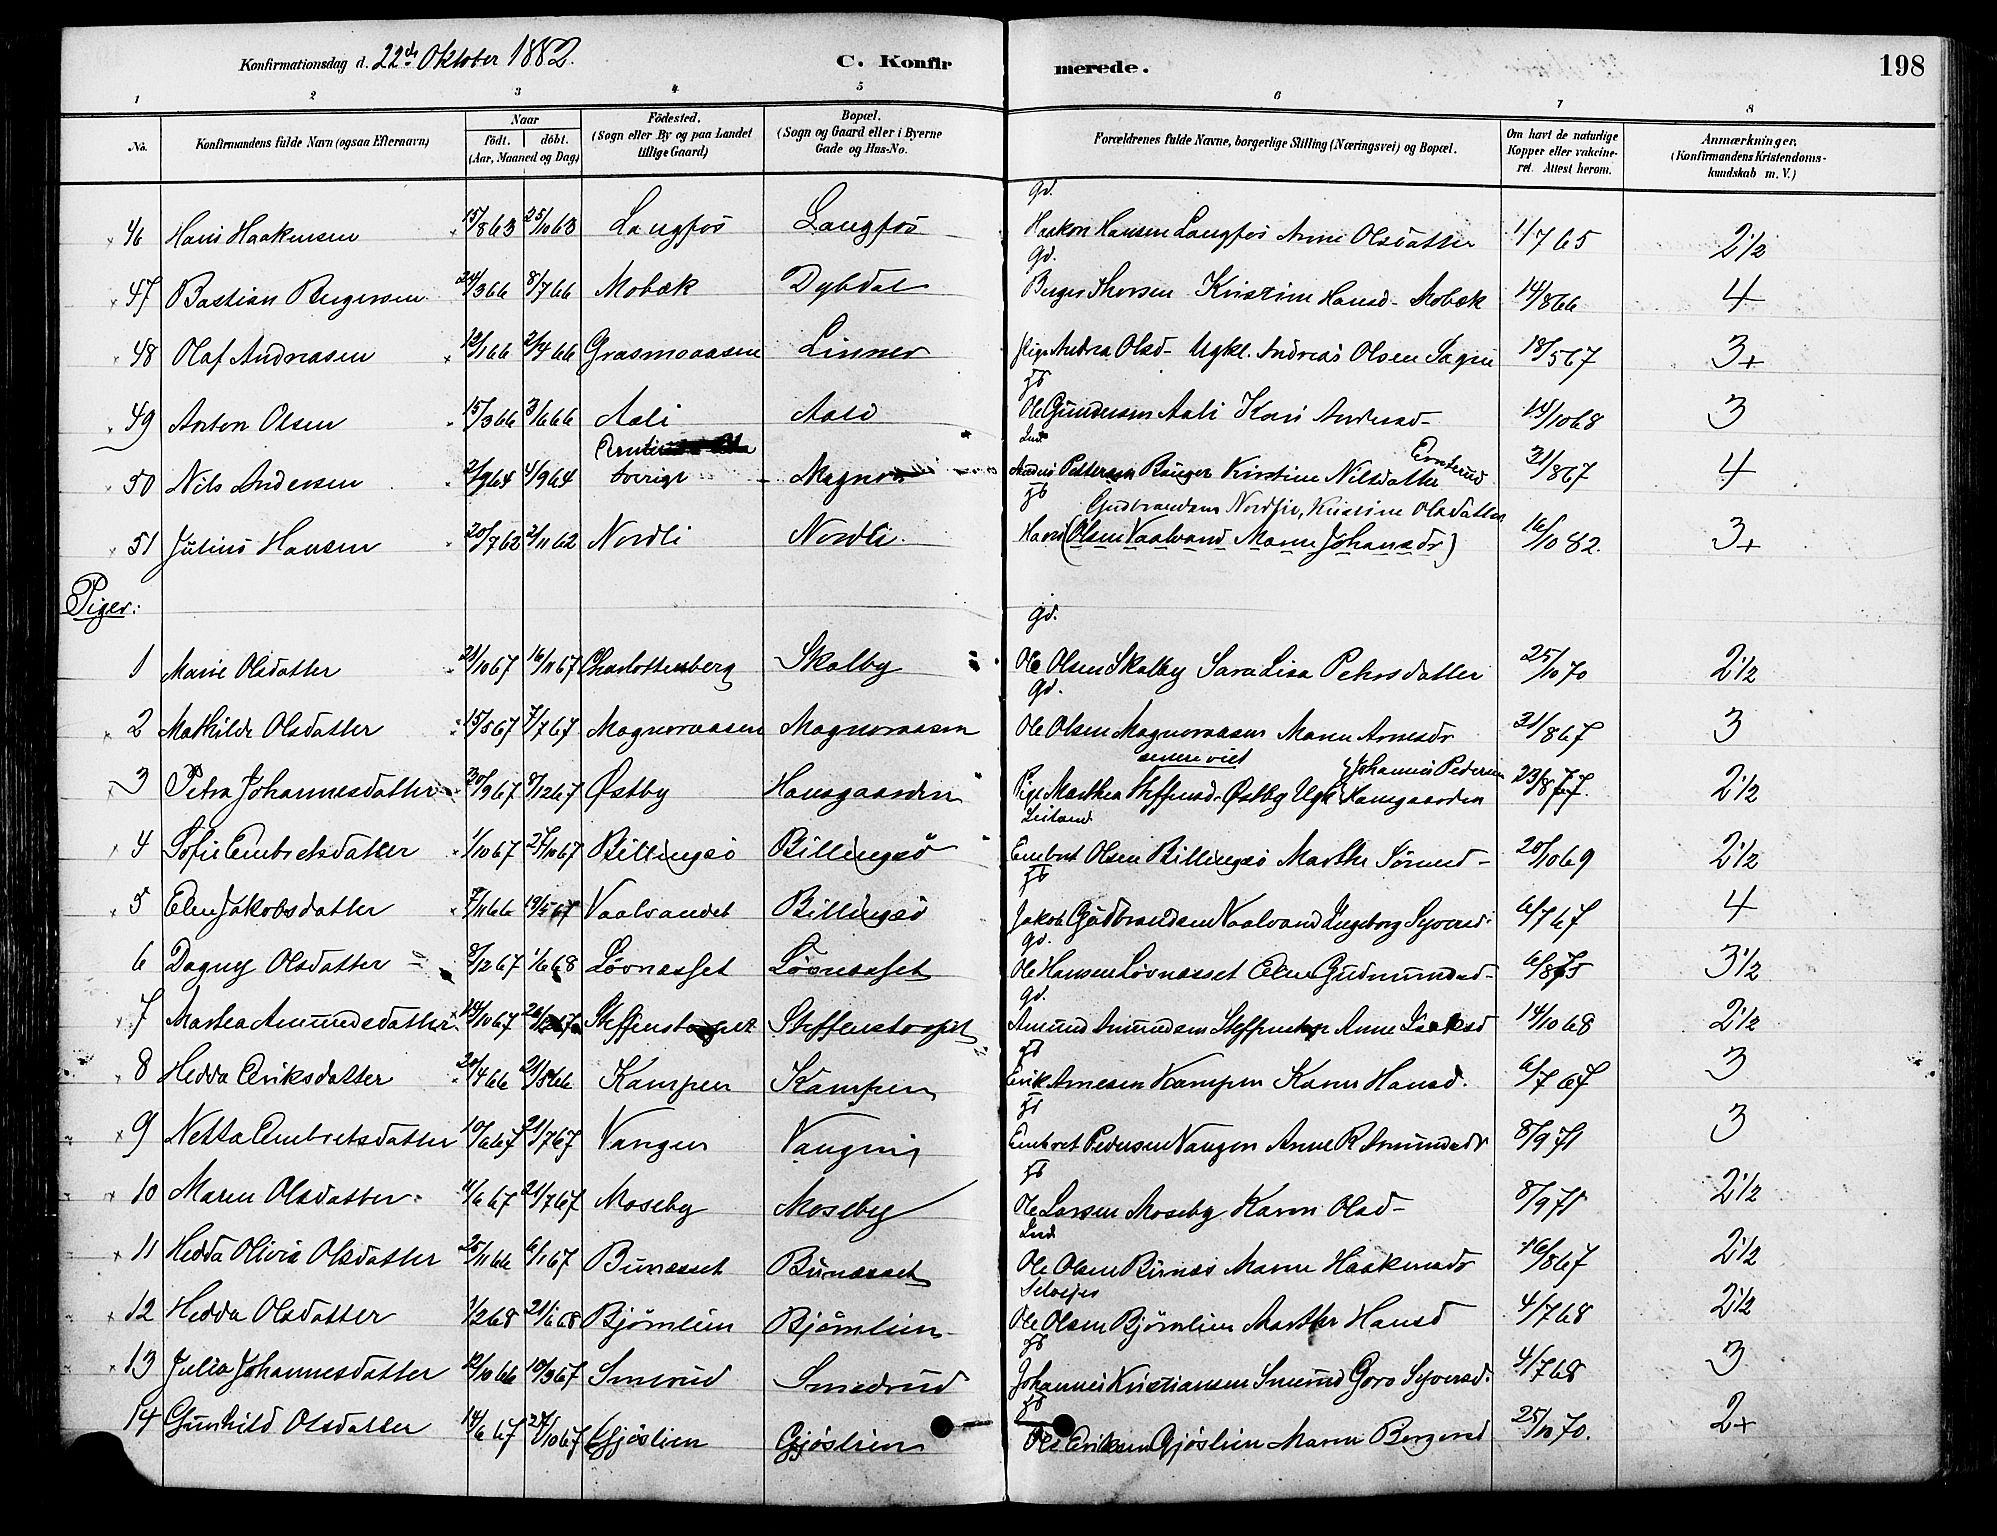 Konfirmationsdag d. 22de Oktober 1882. C. Konfirmerede. 198
1 2 3 4 5 6 7 8
No. Konfirmandens fulde Navn (ogsaa Efternavn) Naar födt. döbt. (Aar, Maaned og Dag) Födested. (Sogn eller By og paa Landet tillige Gaard) Bopæl. (Sogn og Gaard eller i Byerne Gade og Hus-No. Forældrenes fulde Navne, borgerlige Stilling (Næringsvei) og Bopæl. Om havt de naturlige Kopper eller vakcineret. Attest herom. Anmærkninger. (Konfirmandens Kristendomskundskab m. V.)
46 Hans Haakensen 15/8 63 25/10 63 Langfos Langfos Gd. Haakon Hansen Langfos Anne Olsdatter 1/7 65 2 1/2
47 Bastian Bergersen 24/3 66 8/7 66 Mobæk Dybdal Gd. Berger Thorsen Kristine Hansd- Mobæk 14/8 66 4
48 Olaf Andreasen 12/1 66 2/4 66 Grasmoaasen Linner Pige Andrea Olsd- Ugkl. Andreas Olsen Sagen 18/5 67 3+
49 Anton Olsen 15/3 66 3/6 66 Aali Aali Ole Gundersen Aali Kari Andersd- 14/10 68 3
50 Nils Andersen 2/9 64 4/9 64 Sverige Magnor Ind. Anders Pettersen Kristine Nilsdatter Ernterud 31/8 67 4
51 Julius Hansen 20/7 62 2/11 62 Nordli Nordli. Gudbrandsen Nordlie, Kristine Olsdatter Hans (Olsen Vaalvand Maren Johansdr) 16/10 82. 3+
Piger:
1 Marie Olsdatter 21/10 67 16/11 67 Charlottenberg Skalby Gd. Ole Olsen Skalby Sara Lisa Pehrsdatter 25/10 70 2 1/2
2 Mathilde Olsdatter 15/5 67 7/7 67 Magnoraasen Magnoraasen Gd. Ole Olsen Magnoraasen Maren Arnesdr 31/8 67 3
3 Petra Johannesdatter 30/9 67 8/12 67 Østby Hansgaarden senere viet Pige Marthea Steffensd. Østby Ugk Johannes Pedersen Hansgaarden 23/8 77. 2 1/2
4 Sofie Embretsdatter 1/10 67 27/10 67 Billingsö Billingsö Embret Olsen Billingsö Marthe Sörensd- 20/10 69 2 1/2
5 Elen Jakobsdatter 7/11 66 19/5 67 Vaalvandet Billingsö Jakob Gudbrandsen Vaalvand Ingeborg Syversd. 6/7 67 4
6 Dagny Olsdatter 8/12 67 1/6 68 Lövnæsset Lövnæsset Gd. Ole Hansen Lövnæsset Elen Gudmundsd- 6/8 75 3 1/2
7 Martea Amundsdatter 14/10 67 26/12 67 Steffenstorpet Steffenstorpet Gd. Amund Amundsen Steffenstorp Anne Isaksd 14/10 68 2 1/2
8 Hedda Eriksdatter 20/4 66 21/5 66 Kampen Kampen Erik Arnesen Kampen Karen Hansd. 6/7 67 3
9 Netta Embretsdatter 10/6 67 21/7 67 Vangen Vangen Embret Pedersen Vangen Anne R. Amundsdr 8/9 71 3
10 Maren Olsdatter 11/6 67 21/7 67 Moseby Moseby Ole Larsen Moseby Karen Olsd- 8/9 71 2 1/2
11 Hedda Olivia Olsdatter 25/11 66 6/1 67 Bunæsset Bunæsset Ind. Ole Olsen Bunæs Maren Haakensdr 16/8 67 2 1/2
12 Hedda Olsdatter 1/2 68 21/6 68 Bjørnlien Bjørnlien Selveier Ole Olsen Bjørnlien Marthe Hansd 4/7 68 2 1/2
13 Julia Johannesdatter 12/10 66 10/3 67 Smerud Smedrud Johannes Kristiansen Smerud Goro Syversd. 4/7 68 3
14 Gunhild Olsdatter 14/6 67 27/10 67 Gjöslien Gjöslien Ole Eriksen Gjöslien Maren Bergersd 25/10 70. 2+